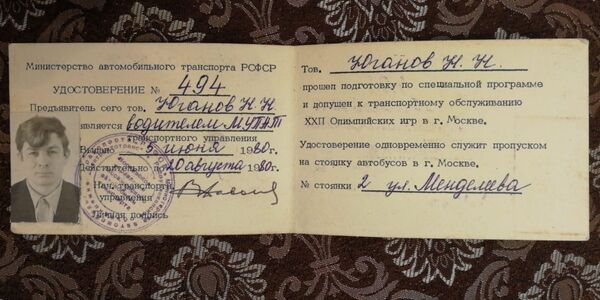 Министерство автомобильного транспорта РСФСР
УДОСТОВЕРЕНИЕ № 494
Предъявитель сего тов. Юганов Н. Н.
является водителем
транспортного управления
Выдано 5 июня 1980г.
Действительно 20 августа 1980г.
Нач. транспорт.
управления
Личная подпись
Тов. Юганов Н. Н.
прошел подготовку по специальной программе
и допущен к транспортному обслуживанию
XXII Олимпийских игр в г. Москве.
Удостоверение одновременно служит пропуском
на стоянку автобусов в г. Москве.
№ стоянки 2 ул. Менделеева